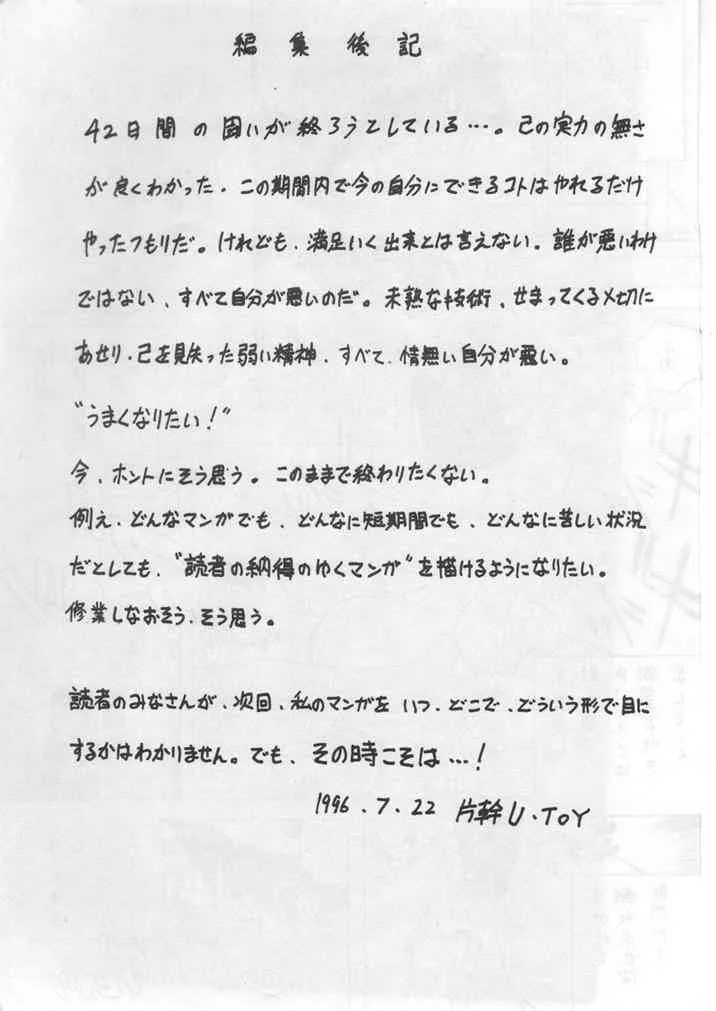 編集後記
42日間の固いが終ろうとしている…。己の実力の無さ
が良くわかった。この期間内で今の自分にできるコトはやれるだけ
やったつもりだ。けれども、満足いく出来とは言えない。誰が悪いわけ
ではない、すべて自分が悪いのだ。未熟な技術、せまってくる〆切に
あせり、己を見失った弱い精神、すべて、情無い自分が悪い。
“うまくなりたい!”
今、ホントにそう思う。このままで終わりたくない。
例え、どんなマンガでも、どんなに短期間でも、どんなに苦しい状況
だとしても、“読者の納得のゆくマンガ”を描けるようになりたい。
修業しなおそう、そう思う。
読者のみなさんが、次回、私のマンガを いつ、どこで、どういう形で目に
するかはわかりません。でも、その時こそは…!
1996.7.22 片幹U・TOY